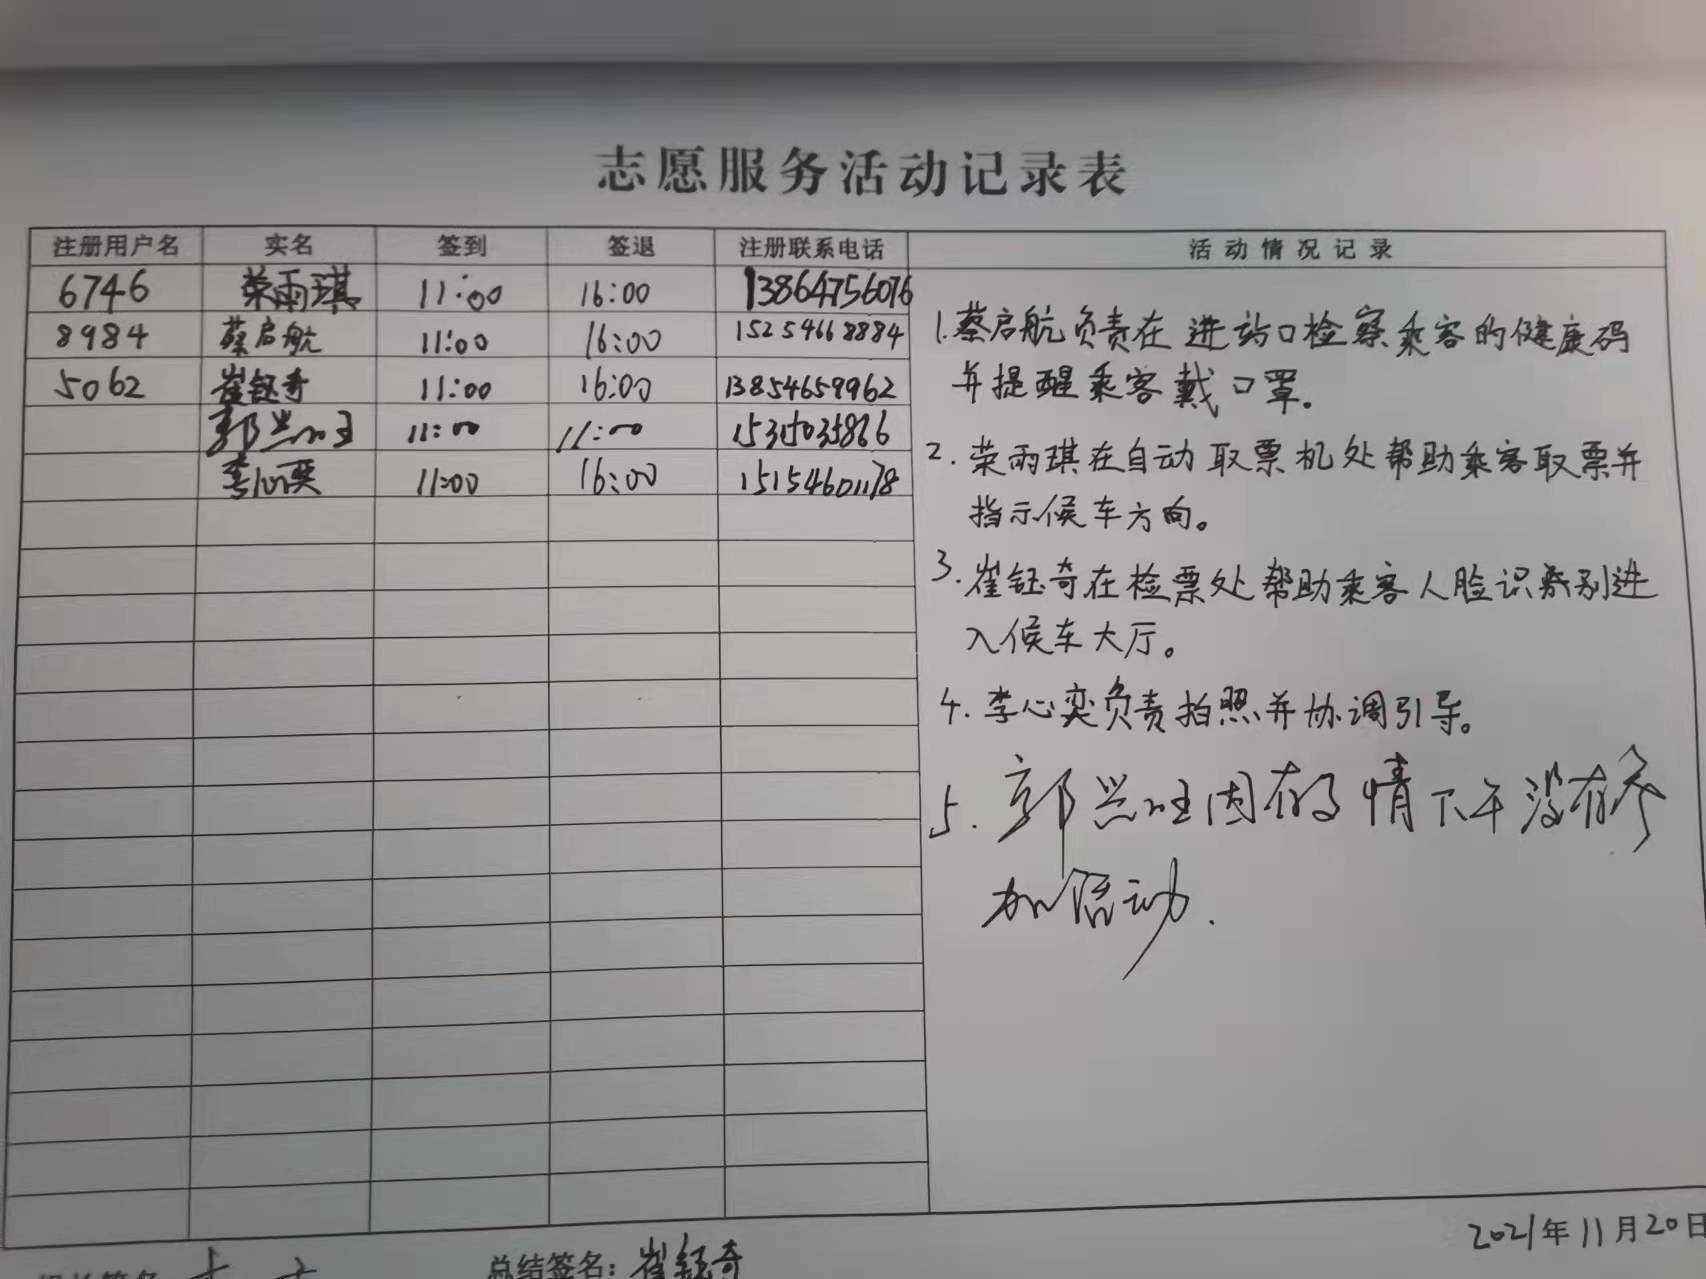 志愿服务活动记录表
注册用户名 实名 签到 签退 注册联系电话 活动情况记录
6746 荣雨琪 11:00 16:00 13864756076
8984 蔡启航 11:00 16:00 15254668884
5062 崔钰奇 11:00 16:00 13854659962
郭兴旺 11:00 11:00 15315035866
李心奕 11:00 16:00 15154601178
1.蔡启航负责在进站口检察乘客的健康码
并提醒乘客戴口罩。
2.荣雨琪在自动取票机处帮助乘客取票并
指示候车方向。
3.崔钰奇在检票处帮助乘客人脸识别进
入候车大厅。
4.李心奕负责拍照并协调引导。
5.郭兴旺因有事情下午没有参
加活动.
2021年11月20日
总结签名：崔钰奇